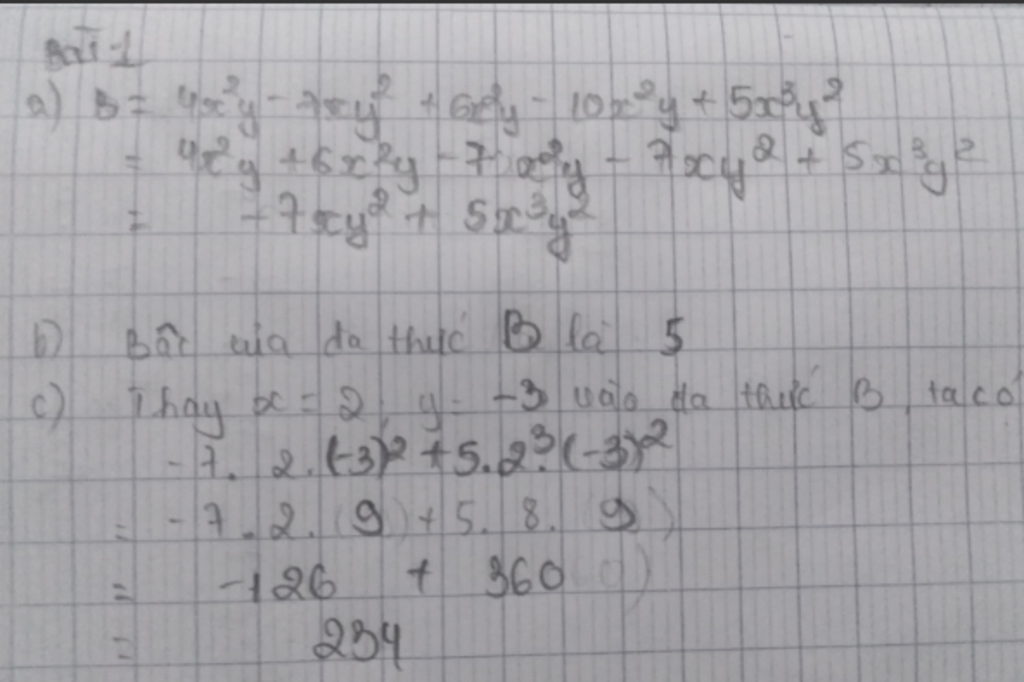 Bài 1
a) B = 4x²y - 7xy² + 6x²y - 10x²y + 5x³y²
= 4x²y + 6x²y - 7x²y - 7xy² + 5x³y²
= -7xy² + 5x³y²
b) Bậc của đa thức B là 5
c) Thay x = 2, y = -3 vào đa thức B, ta có
-7. 2. (-3)² + 5. 2³. (-3)²
= -7. 2. (9) + 5. 8. 9)
= -126 + 360
= 234